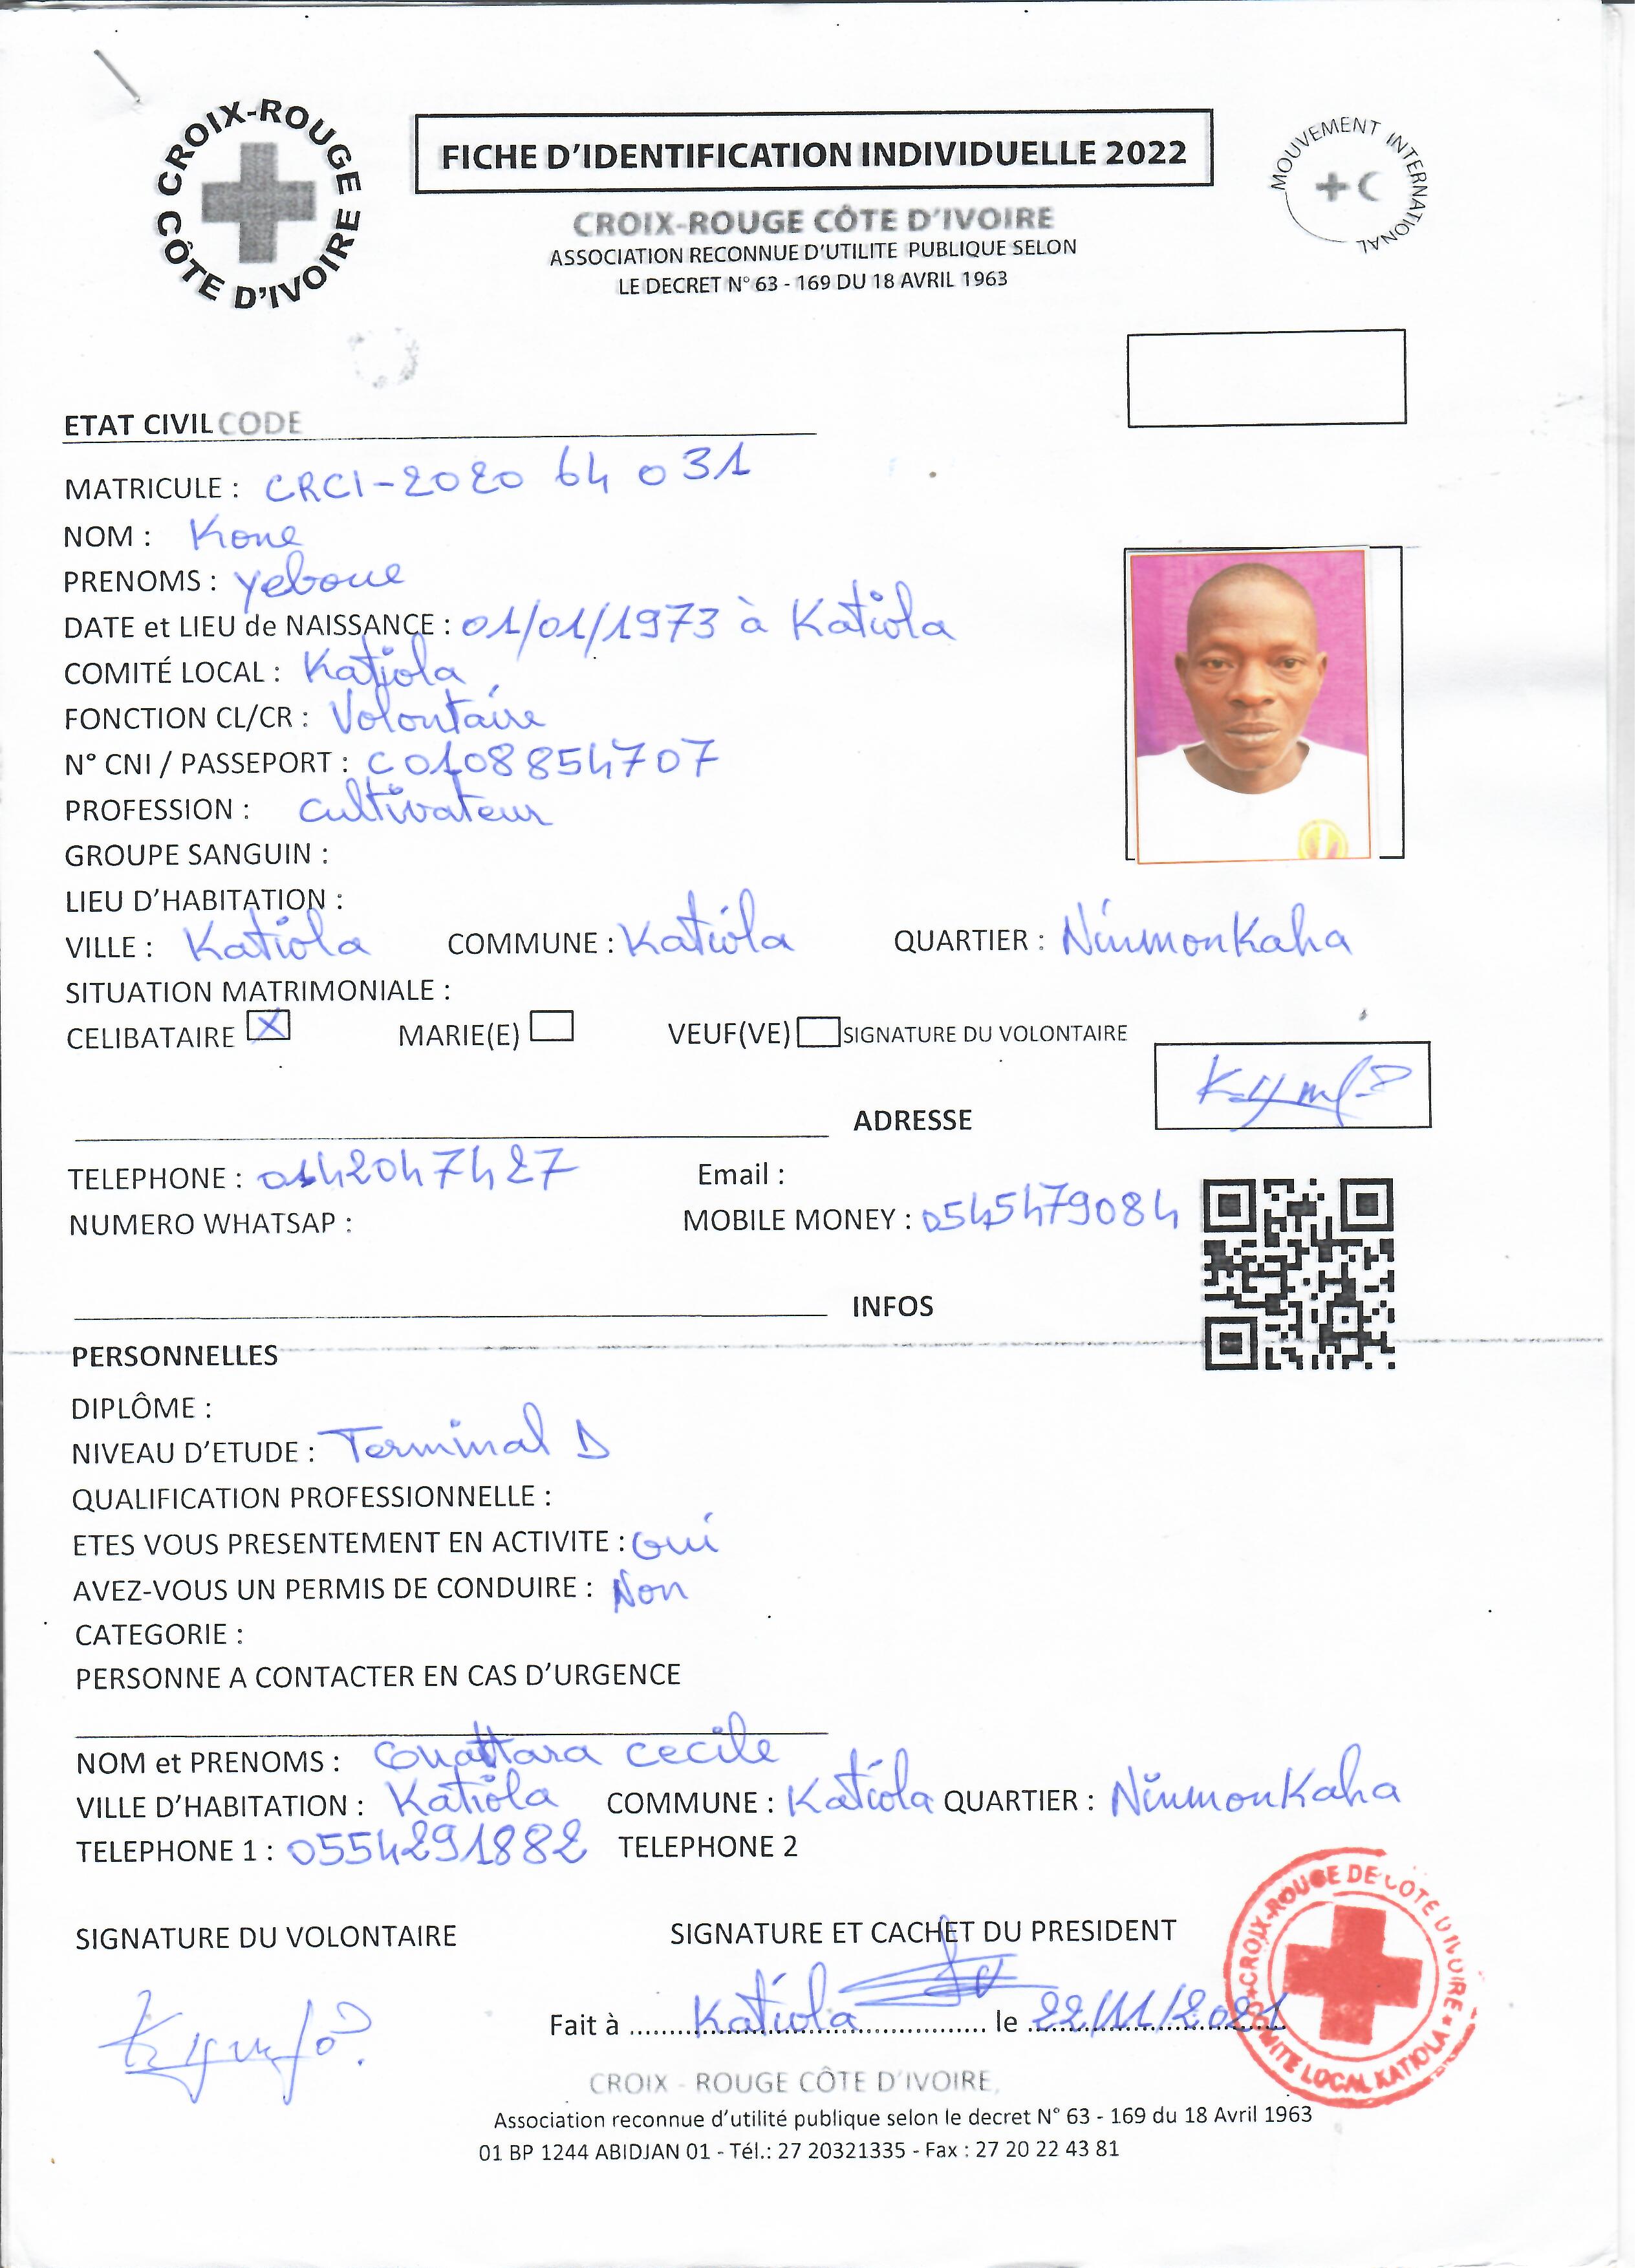 CROIX-ROUGE CÔTE D'IVOIRE
FICHE D'IDENTIFICATION INDIVIDUELLE 2022
MOUVEMENT INTERNATIONAL
CROIX-ROUGE CÔTE D'IVOIRE
ASSOCIATION RECONNUE D'UTILITE PUBLIQUE SELON
LE DECRET N° 63 - 169 DU 18 AVRIL 1963
ETAT CIVIL CODE
MATRICULE : CRCI-2020 64 031
NOM : Kone
PRENOMS : Yeboue
DATE et LIEU de NAISSANCE : 01/01/1973 à Katiola
COMITÉ LOCAL : Katiola
FONCTION CL/CR : Volontaire
N° CNI / PASSEPORT : C0108854707
PROFESSION : cultivateur
GROUPE SANGUIN :
LIEU D'HABITATION :
VILLE : Katiola COMMUNE : Katiola QUARTIER : NinmonKaha
SITUATION MATRIMONIALE :
CELIBATAIRE X MARIE(E) VEUF(VE) SIGNATURE DU VOLONTAIRE
ADRESSE
TELEPHONE : 0142047427 Email :
NUMERO WHATSAP : MOBILE MONEY : 0545479084
INFOS
PERSONNELLES
DIPLÔME :
NIVEAU D'ETUDE : Terminal D
QUALIFICATION PROFESSIONNELLE :
ETES VOUS PRESENTEMENT EN ACTIVITE : Oui
AVEZ-VOUS UN PERMIS DE CONDUIRE : Non
CATEGORIE :
PERSONNE A CONTACTER EN CAS D'URGENCE
NOM et PRENOMS : Ouattara cecile
VILLE D'HABITATION : Katiola COMMUNE : Katiola QUARTIER : NinmonKaha
TELEPHONE 1 : 0554291882 TELEPHONE 2
SIGNATURE DU VOLONTAIRE SIGNATURE ET CACHET DU PRESIDENT
Fait à Katiola le 22/11/2021
CROIX-ROUGE DE COTE D'IVOIRE
COMITE LOCAL KATIOLA
CROIX - ROUGE CÔTE D'IVOIRE,
Association reconnue d'utilité publique selon le decret N° 63 - 169 du 18 Avril 1963
01 BP 1244 ABIDJAN 01 - Tél.: 27 20321335 - Fax : 27 20 22 43 81